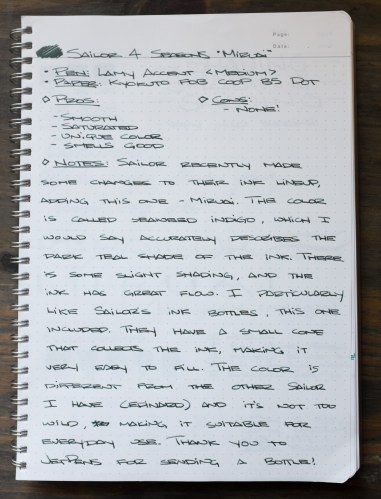 Page:
Date:
Sailor 4 Seasons "Miruai"
• Pen: Lamy Accent <Medium>
• Paper: Kyokuto FOB COOP B5 Dot
◇ Pros:
- Smooth
- Saturated
- Unique color
- Smells good
◇ Cons:
- None!
◇ Notes: Sailor recently made
some changes to their ink lineup,
adding this one - Miruai. The color
is called seaweed indigo, which I
would say accurately describes the
dark teal shade of the ink. There
is some slight shading, and the
ink has great flow. I particularly
like Sailor's ink bottles, this one
included. They have a small cone
that collects the ink, making it
very easy to fill. The color is
different from the other Sailor
I have (Epinard) and it's not too
wild, making it suitable for
everyday use. Thank you to
JetPens for sending a bottle!